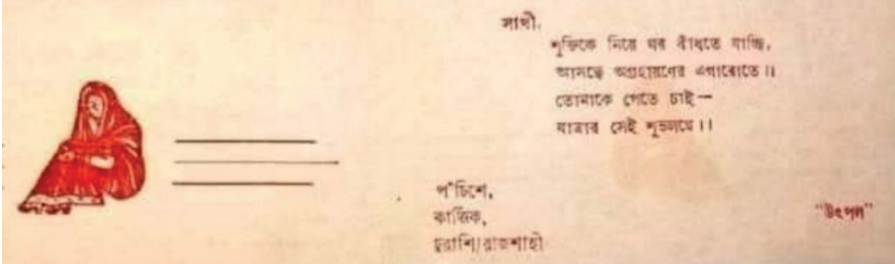 সাথী,
শুক্তিকে নিয়ে ঘর বাঁধতে যাচ্ছি,
আসছে অগ্রহায়ণের এগারোতে॥
তোমাকে পেতে চাই—
যাত্রার সেই শুভলগ্নে॥
পঁচিশে,
কার্ত্তিক,
চুরাশি/রাজশাহী
"উৎপল"